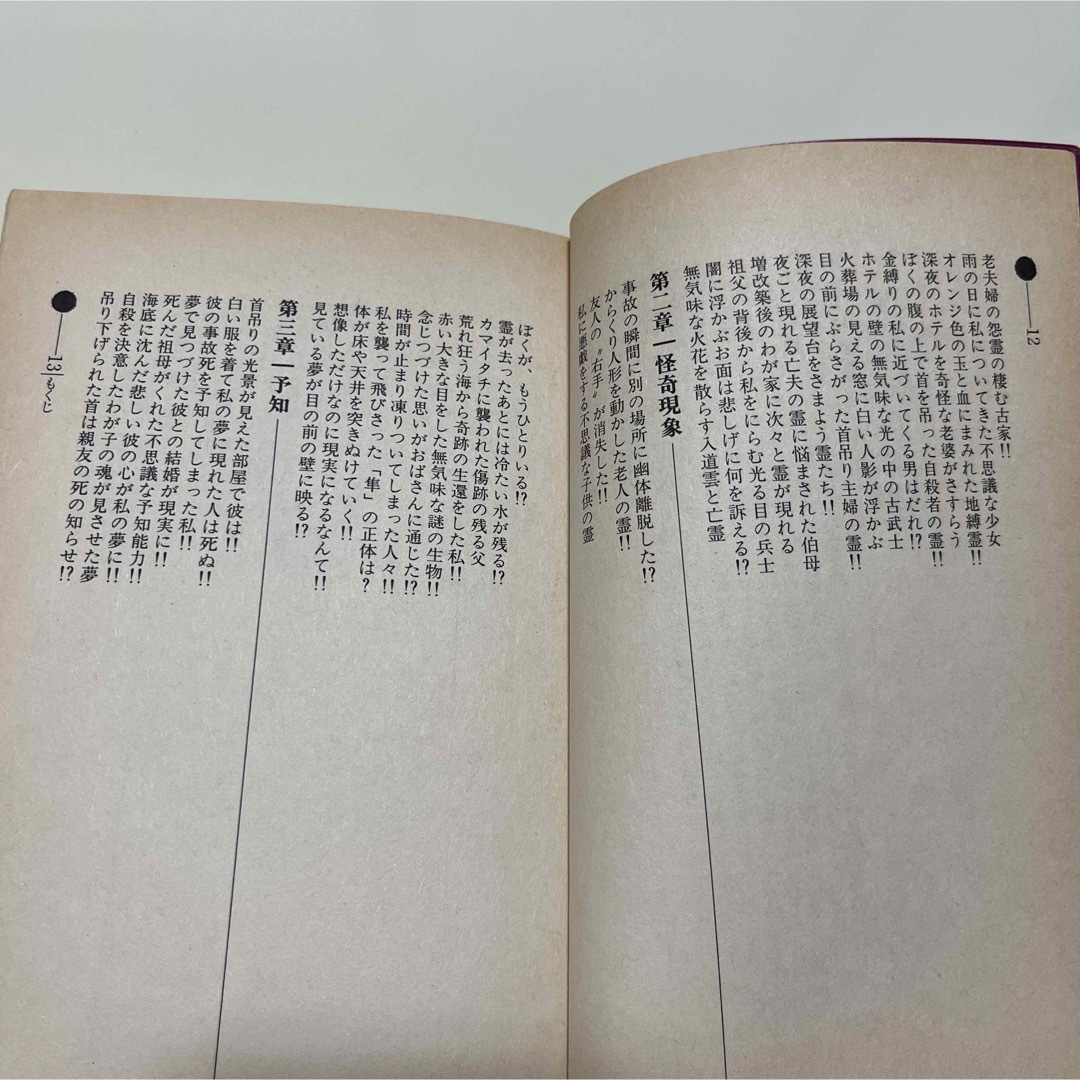 12
老夫婦の怨霊の棲む古家!!
雨の日に私についてきた不思議な少女
オレンジ色の玉と血にまみれた地縛霊!!
深夜のホテルを奇怪な老婆がさすらう
ぼくの腹の上で首を吊った自殺者の霊!!
金縛りの私に近づいてくる男はだれ!?
ホテルの壁の無気味な光の中の古武士
火葬場の見える窓に白い人影が浮かぶ
目の前にぶらさがった首吊り主婦の霊!!
深夜の展望台をさまよう霊たち!!
夜ごと現れる亡夫の霊に悩まされた伯母
増改築後のわが家に次々と霊が現れる
祖父の背後から私をにらむ光る目の兵士
闇に浮かぶお面は悲しげに何を訴える!?
無気味な火花を散らす入道雲と亡霊
第二章―怪奇現象
事故の瞬間に別の場所に幽体離脱した!?
からくり人形を動かした老人の霊!!
友人の〝右手〟が消失した!!
私に悪戯をする不思議な子供の霊
ぼくが、もうひとりいる!?
霊が去ったあとには冷たい水が残る!?
カマイタチに襲われた傷跡の残る父
荒れ狂う海から奇跡の生還をした私!!
赤い大きな目をした無気味な謎の生物!!
念じつづけた思いがおばさんに通じた!?
時間が止まり凍りついてしまった人々!!
私を襲って飛びさった「隼」の正体は?
体が床や天井を突きぬけていく!!
想像しただけなのに現実になるなんて!!
見ている夢が目の前の壁に映る!?
第三章―予知
首吊りの光景が見えた部屋で彼は!!
白い服を着て私の夢に現れた人は死ぬ!!
彼の事故死を予知してしまった私!!
夢で見つづけた彼との結婚が現実に!!
死んだ祖母がくれた不思議な予知能力!!
海底に沈んだ悲しい彼の心が私の夢に!!
自殺を決意したわが子の魂が見させた夢
吊り下げられた首は親友の死の知らせ!?
13 もくじ